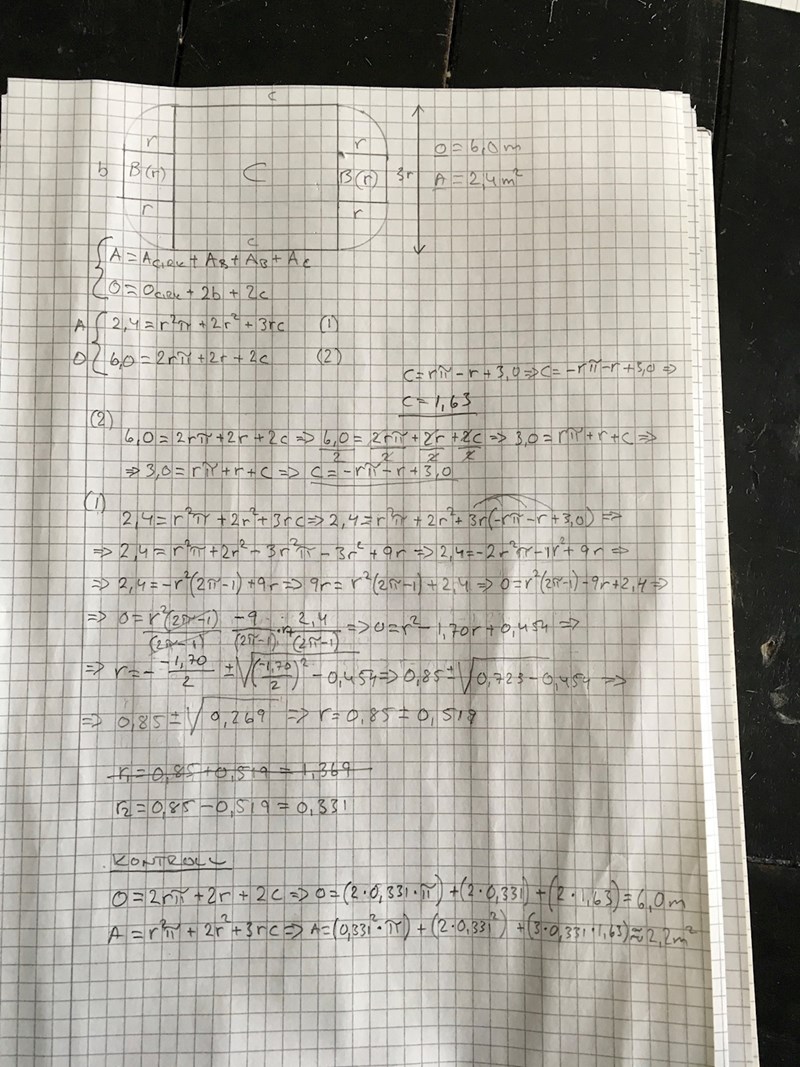 c
r r
b B(r) C B(r) 3r O = 6,0 m
r r A = 2,4 m²
c
A = Acirk + AB + AB + Ac
O = Ocirk + 2b + 2c
A { 2,4 = r²π + 2r² + 3rc (1)
O { 6,0 = 2rπ + 2r + 2c (2)
c = rπ - r + 3,0 ⇒ c = -rπ - r + 3,0 ⇒
c = 1,63
(2)
6,0 = 2rπ + 2r + 2c ⇒ 6,0/2 = 2rπ/2 + 2r/2 + 2c/2 ⇒ 3,0 = rπ + r + c ⇒
⇒ 3,0 = rπ + r + c ⇒ c = -rπ - r + 3,0
(1)
2,4 = r²π + 2r² + 3rc ⇒ 2,4 = r²π + 2r² + 3r(-rπ - r + 3,0) ⇒
⇒ 2,4 = r²π + 2r² - 3r²π - 3r² + 9r ⇒ 2,4 = -2r²π - 1r² + 9r ⇒
⇒ 2,4 = -r²(2π-1) + 9r ⇒ 9r = r²(2π-1) + 2,4 ⇒ 0 = r²(2π-1) - 9r + 2,4 ⇒
⇒ 0 = r²(2π-1)/(2π-1) -9/(2π-1) · r + 2,4/(2π-1) ⇒ 0 = r² - 1,70r + 0,454 ⇒
⇒ r = - -1,70/2 ± √((-1,70/2)² - 0,454) ⇒ 0,85 ± √(0,723 - 0,454) ⇒
⇒ 0,85 ± √0,269 ⇒ r = 0,85 ± 0,519
r₁ = 0,85 + 0,519 = 1,369
r₂ = 0,85 - 0,519 = 0,331
KONTROLL
O = 2rπ + 2r + 2c ⇒ O = (2·0,331·π) + (2·0,331) + (2·1,63) = 6,0 m
A = r²π + 2r² + 3rc ⇒ A = (0,331²·π) + (2·0,331²) + (3·0,331·1,63) ≈ 2,2 m²